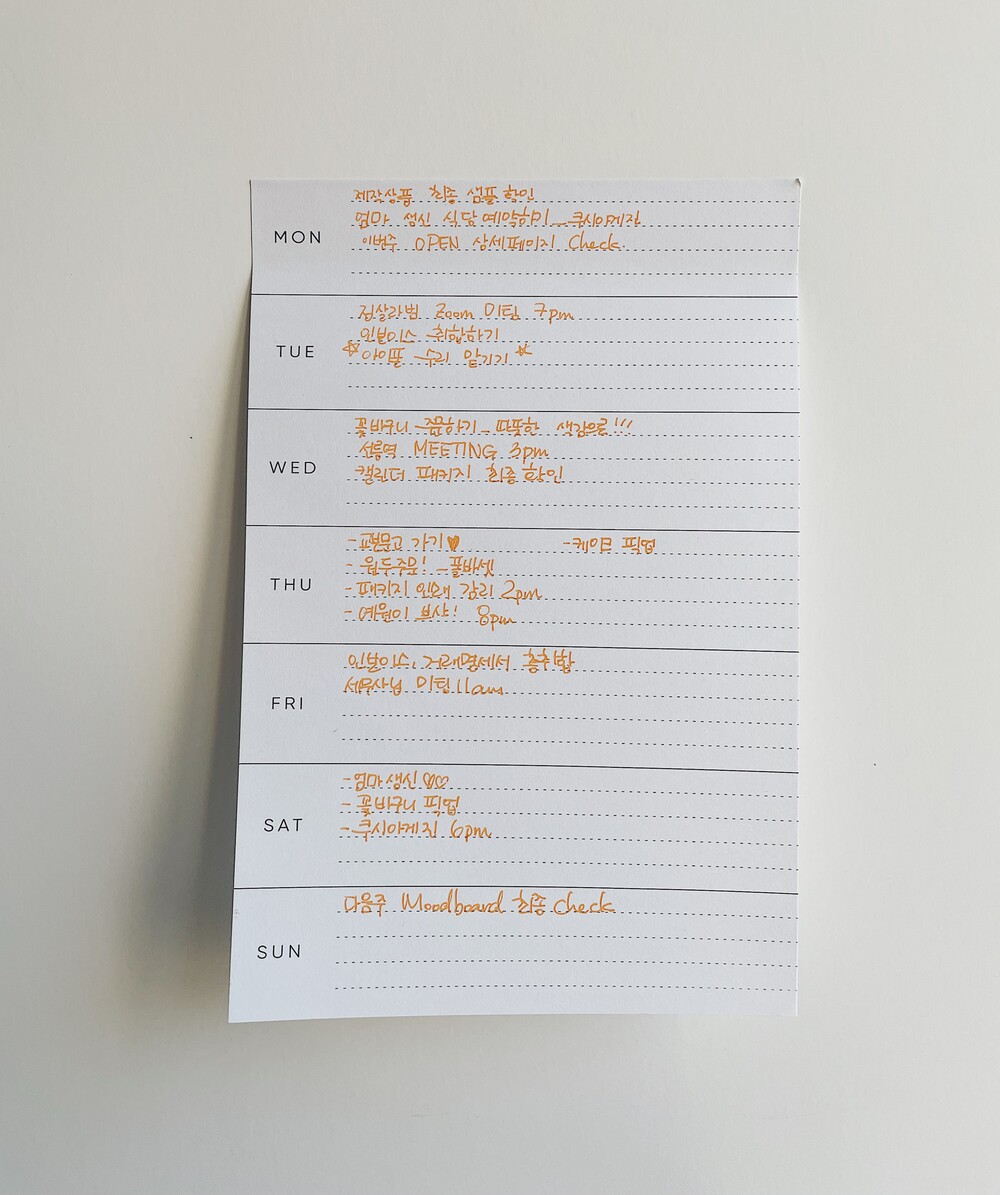 MON
제작상품 최종 샘플 확인
엄마 생신 식당 예약하기_쿠시아게진
이번주 OPEN 상세페이지 Check
TUE
집살라범 Zoom 미팅 7pm
인보이스 취합하기
☆아이폰 수리 맡기기☆
WED
꽃바구니 주문하기_따뜻한 색감으로!!!
선릉역 MEETING 3pm
캘린더 패키지 최종확인
THU
-교보문고 가기♥ -케이크 픽업
- 원두주문! _폴바셋
-패키지 인쇄 감리 2pm
- 예원이 브샤! 8pm
FRI
인보이스, 거래명세서 총취합
세무사님 미팅 11am
SAT
-엄마생신♡♡
- 꽃바구니 픽업
-쿠시아게진 6pm
SUN
다음주 Moodboard 최종 check